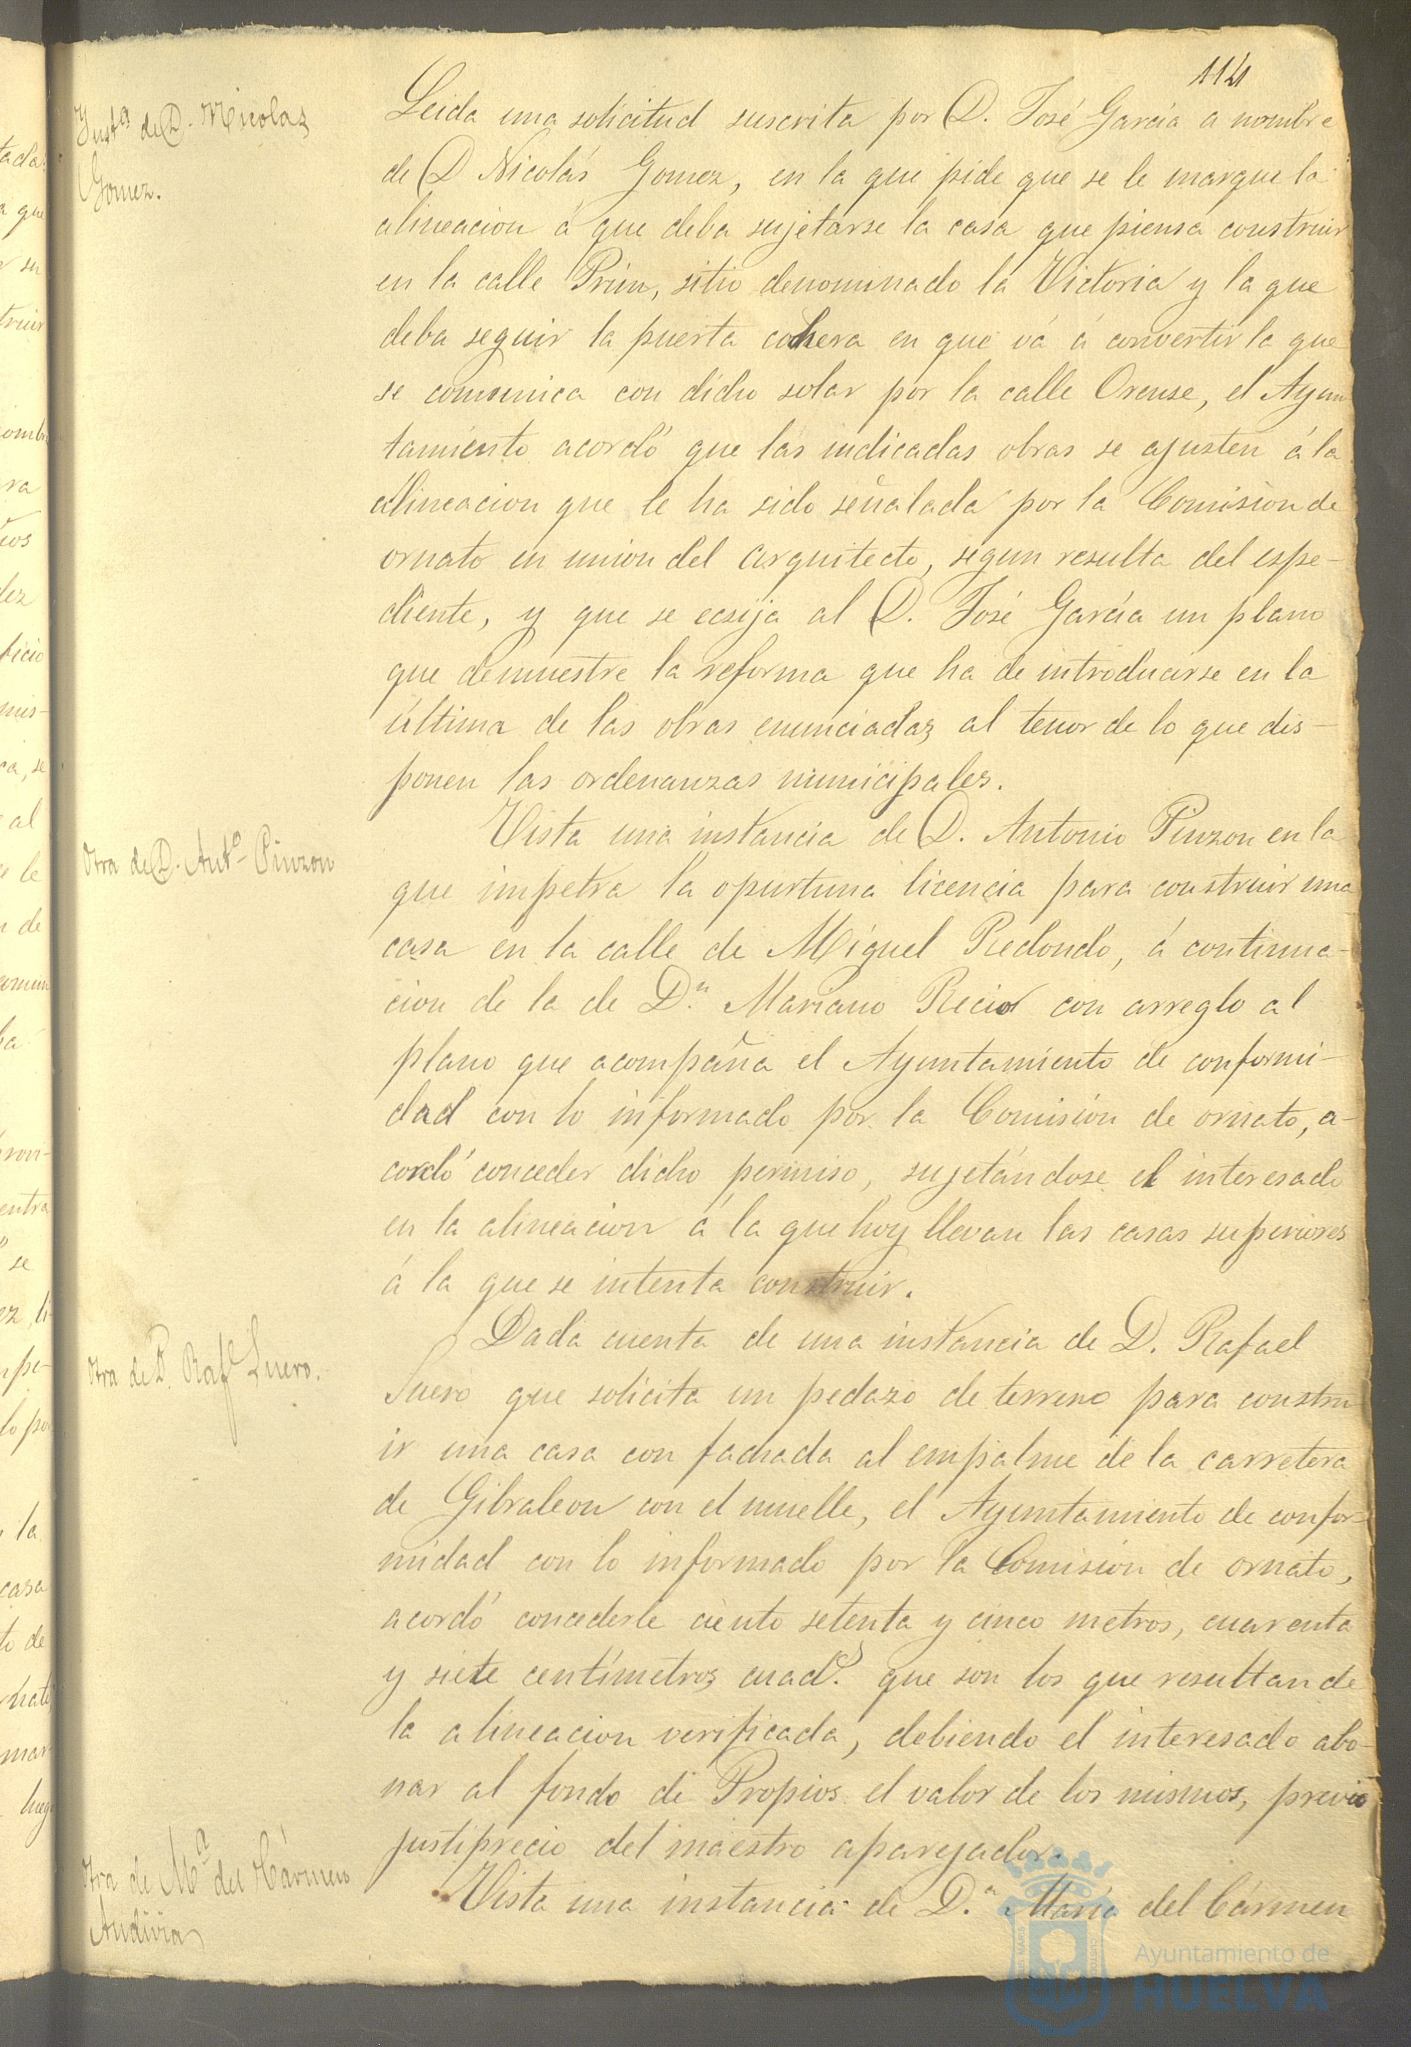 114
Inst.ª de D. Nicolas
Gomez.
Leida una solicitud suscrita por D. José García a nombre
de D Nicolás Gomez, en la que pide que se le marque la
alineacion á que deba sujetarse la casa que piensa construir
en la calle Prim, sitio denominado la Victoria y la que
deba seguir la puerta cochera en que vá á convertir la que
se comunica con dicho solar por la calle Orense, el Ayun
tamiento acordó que las indicadas obras se ajusten á la
alineacion que le ha sido señalada por la Comision de
ornato en union del arquitecto, segun resulta del espe-
diente, y que se ecsija al D. José García un plano
que demuestre la reforma que ha de introducirse en la
última de las obras enunciadas al tenor de lo que dis-
ponen las ordenanzas municipales.
Otra de D. Ant.º Pinzon
Vista una instancia de D. Antonio Pinzon en la
que impetra la oportuna licencia para construir una
casa en la calle de Miguel Redondo, á continua-
cion de la de D.n Mariano Recio con arreglo al
plano que acompaña el Ayuntamiento de conformi-
dad con lo informado por la Comisión de ornato, a-
cordó conceder dicho permiso, sujetándose el interesado
en la alineacion á la que hoy llevan las casas superiores
á la que se intenta construir.
Otra de D. Raf.l Suero.
Dada cuenta de una instancia de D. Rafael
Suero que solicita un pedazo de terreno para constru
ir una casa con fachada al empalme de la carretera
de Gibraleon con el muelle, el Ayuntamiento de confor-
midad con lo informado por la Comision de ornato,
acordó concederle ciento setenta y cinco metros, cuarenta
y siete centímetros cuad.s que son los que resultan de
la alineacion verificada, debiendo el interesado abo-
nar al fondo de Propios el valor de los mismos, previo
justiprecio del maestro aparejador.
Otra de M.ª del Cármen
Andivia
Vista una instancia de D.ª María del Cármen
Ayuntamiento de
HUELVA